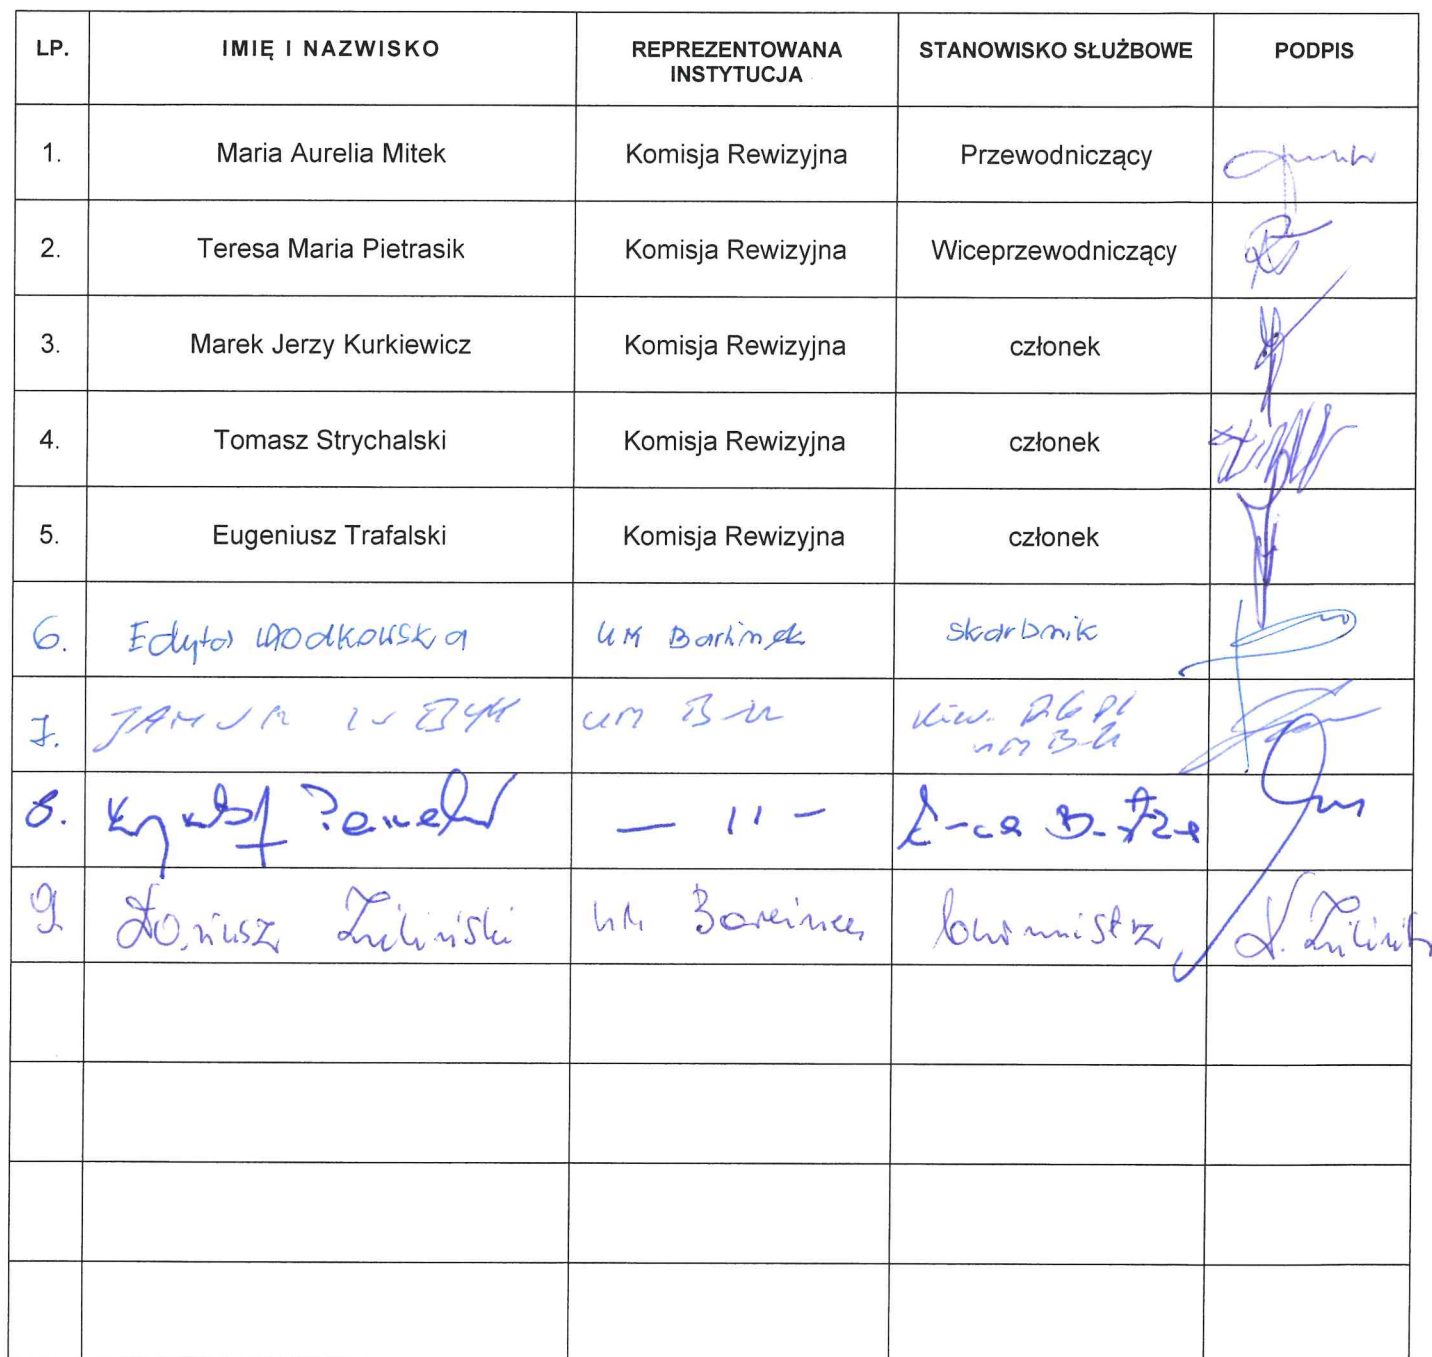 LP. IMIĘ I NAZWISKO REPREZENTOWANA INSTYTUCJA STANOWISKO SŁUŻBOWE PODPIS
1. Maria Aurelia Mitek Komisja Rewizyjna Przewodniczący
2. Teresa Maria Pietrasik Komisja Rewizyjna Wiceprzewodniczący
3. Marek Jerzy Kurkiewicz Komisja Rewizyjna członek
4. Tomasz Strychalski Komisja Rewizyjna członek
5. Eugeniusz Trafalski Komisja Rewizyjna członek
6. Edyta UM Barlinek skarbnik
7. UM
8. Krzysztof — 11 —
9. Dariusz Zieliński UM Barlinek burmistrz D. Zieliński